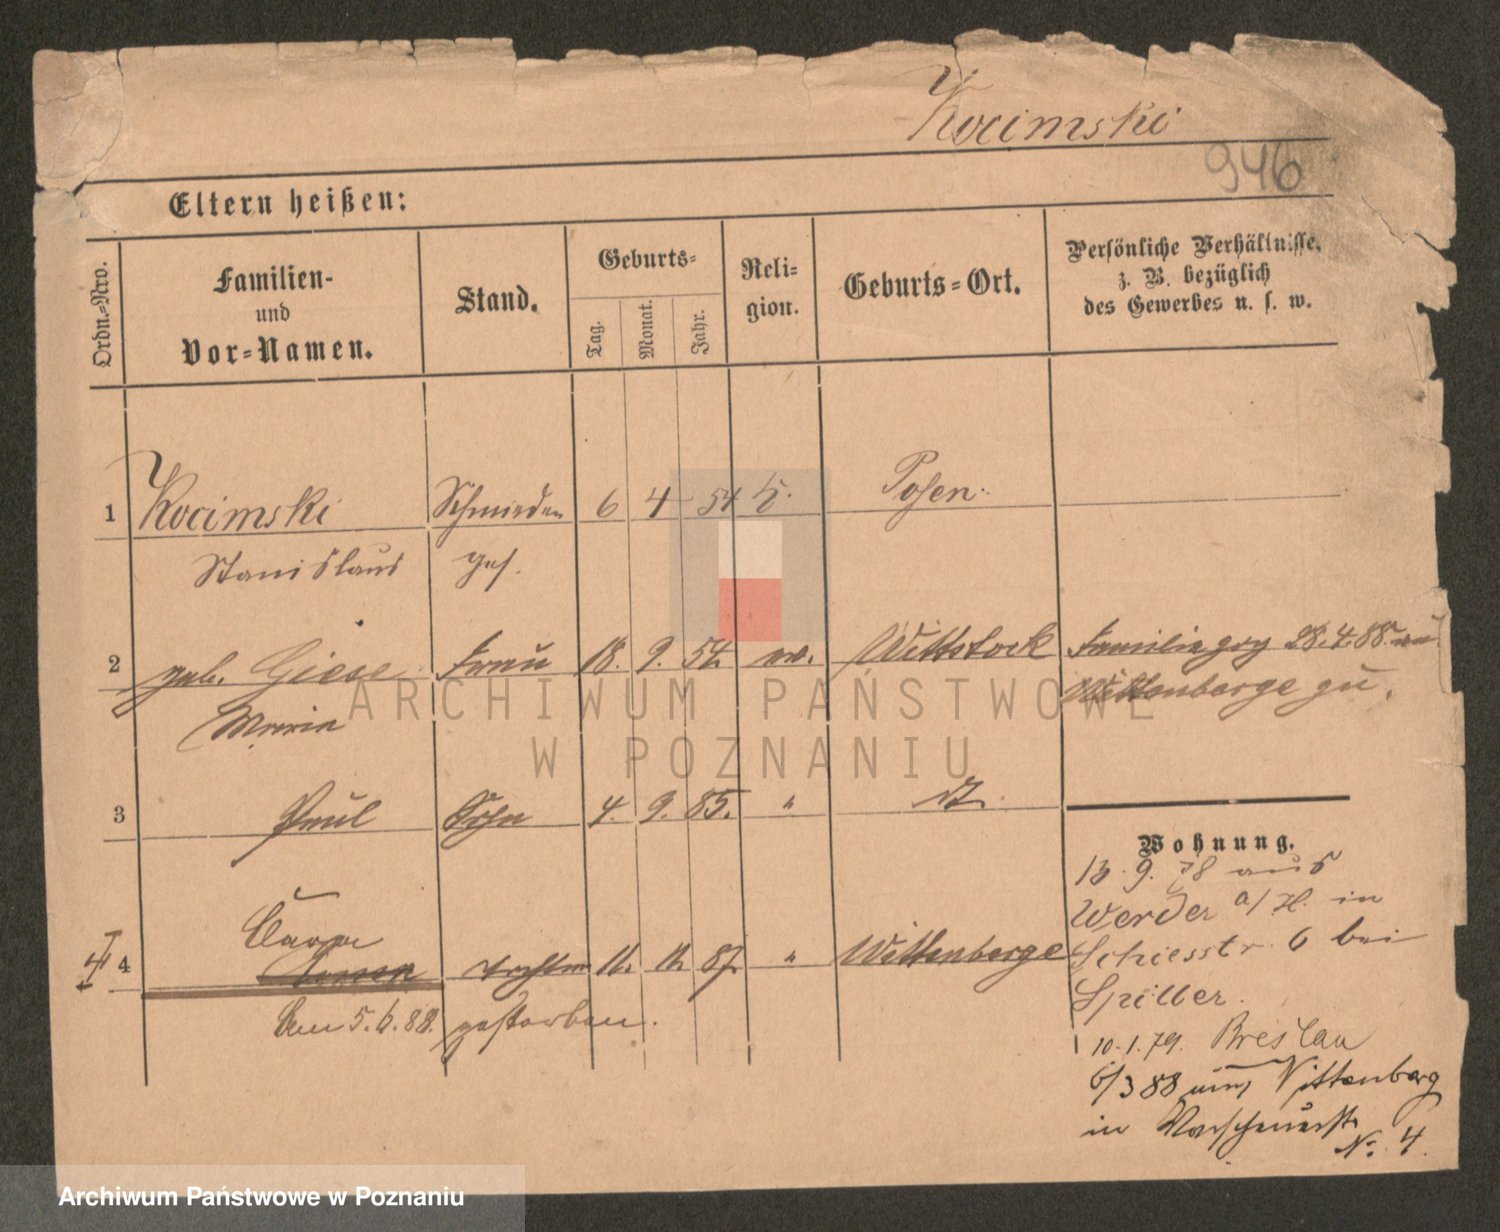 Kocimski
946
Eltern heißen:
Ordn.-Nro.
Familien-
und
Vor-Namen.
Stand.
Geburts-
Tag.
Monat.
Jahr.
Reli-
gion.
Geburts-Ort.
Persönliche Verhältnisse,
z. B. bezüglich
des Gewerbes u. s. w.
1 Kocimski Schmiede 6 4 54 k. Posen.
Stanislaus ges.
2 geb. Giese Frau 18. 9. 54 ev. Wittstock Familie 28.4.88 
Maria Wittenberge
3 Paul Sohn 4. 9. 85. " dt.
4 Tochter 11. 11. 87. " Wittenberge
Am 5.6.88. gestorben.
Wohnung.
13. 9. 78 aus
Werder a/H. in
Schiesstr. 6 bei
Spiller.
10.1.79. Breslau
6/3 88 Wittenberg
in
No. 4.
ARCHIWUM PAŃSTWOWE
W POZNANIU
Archiwum Państwowe w Poznaniu